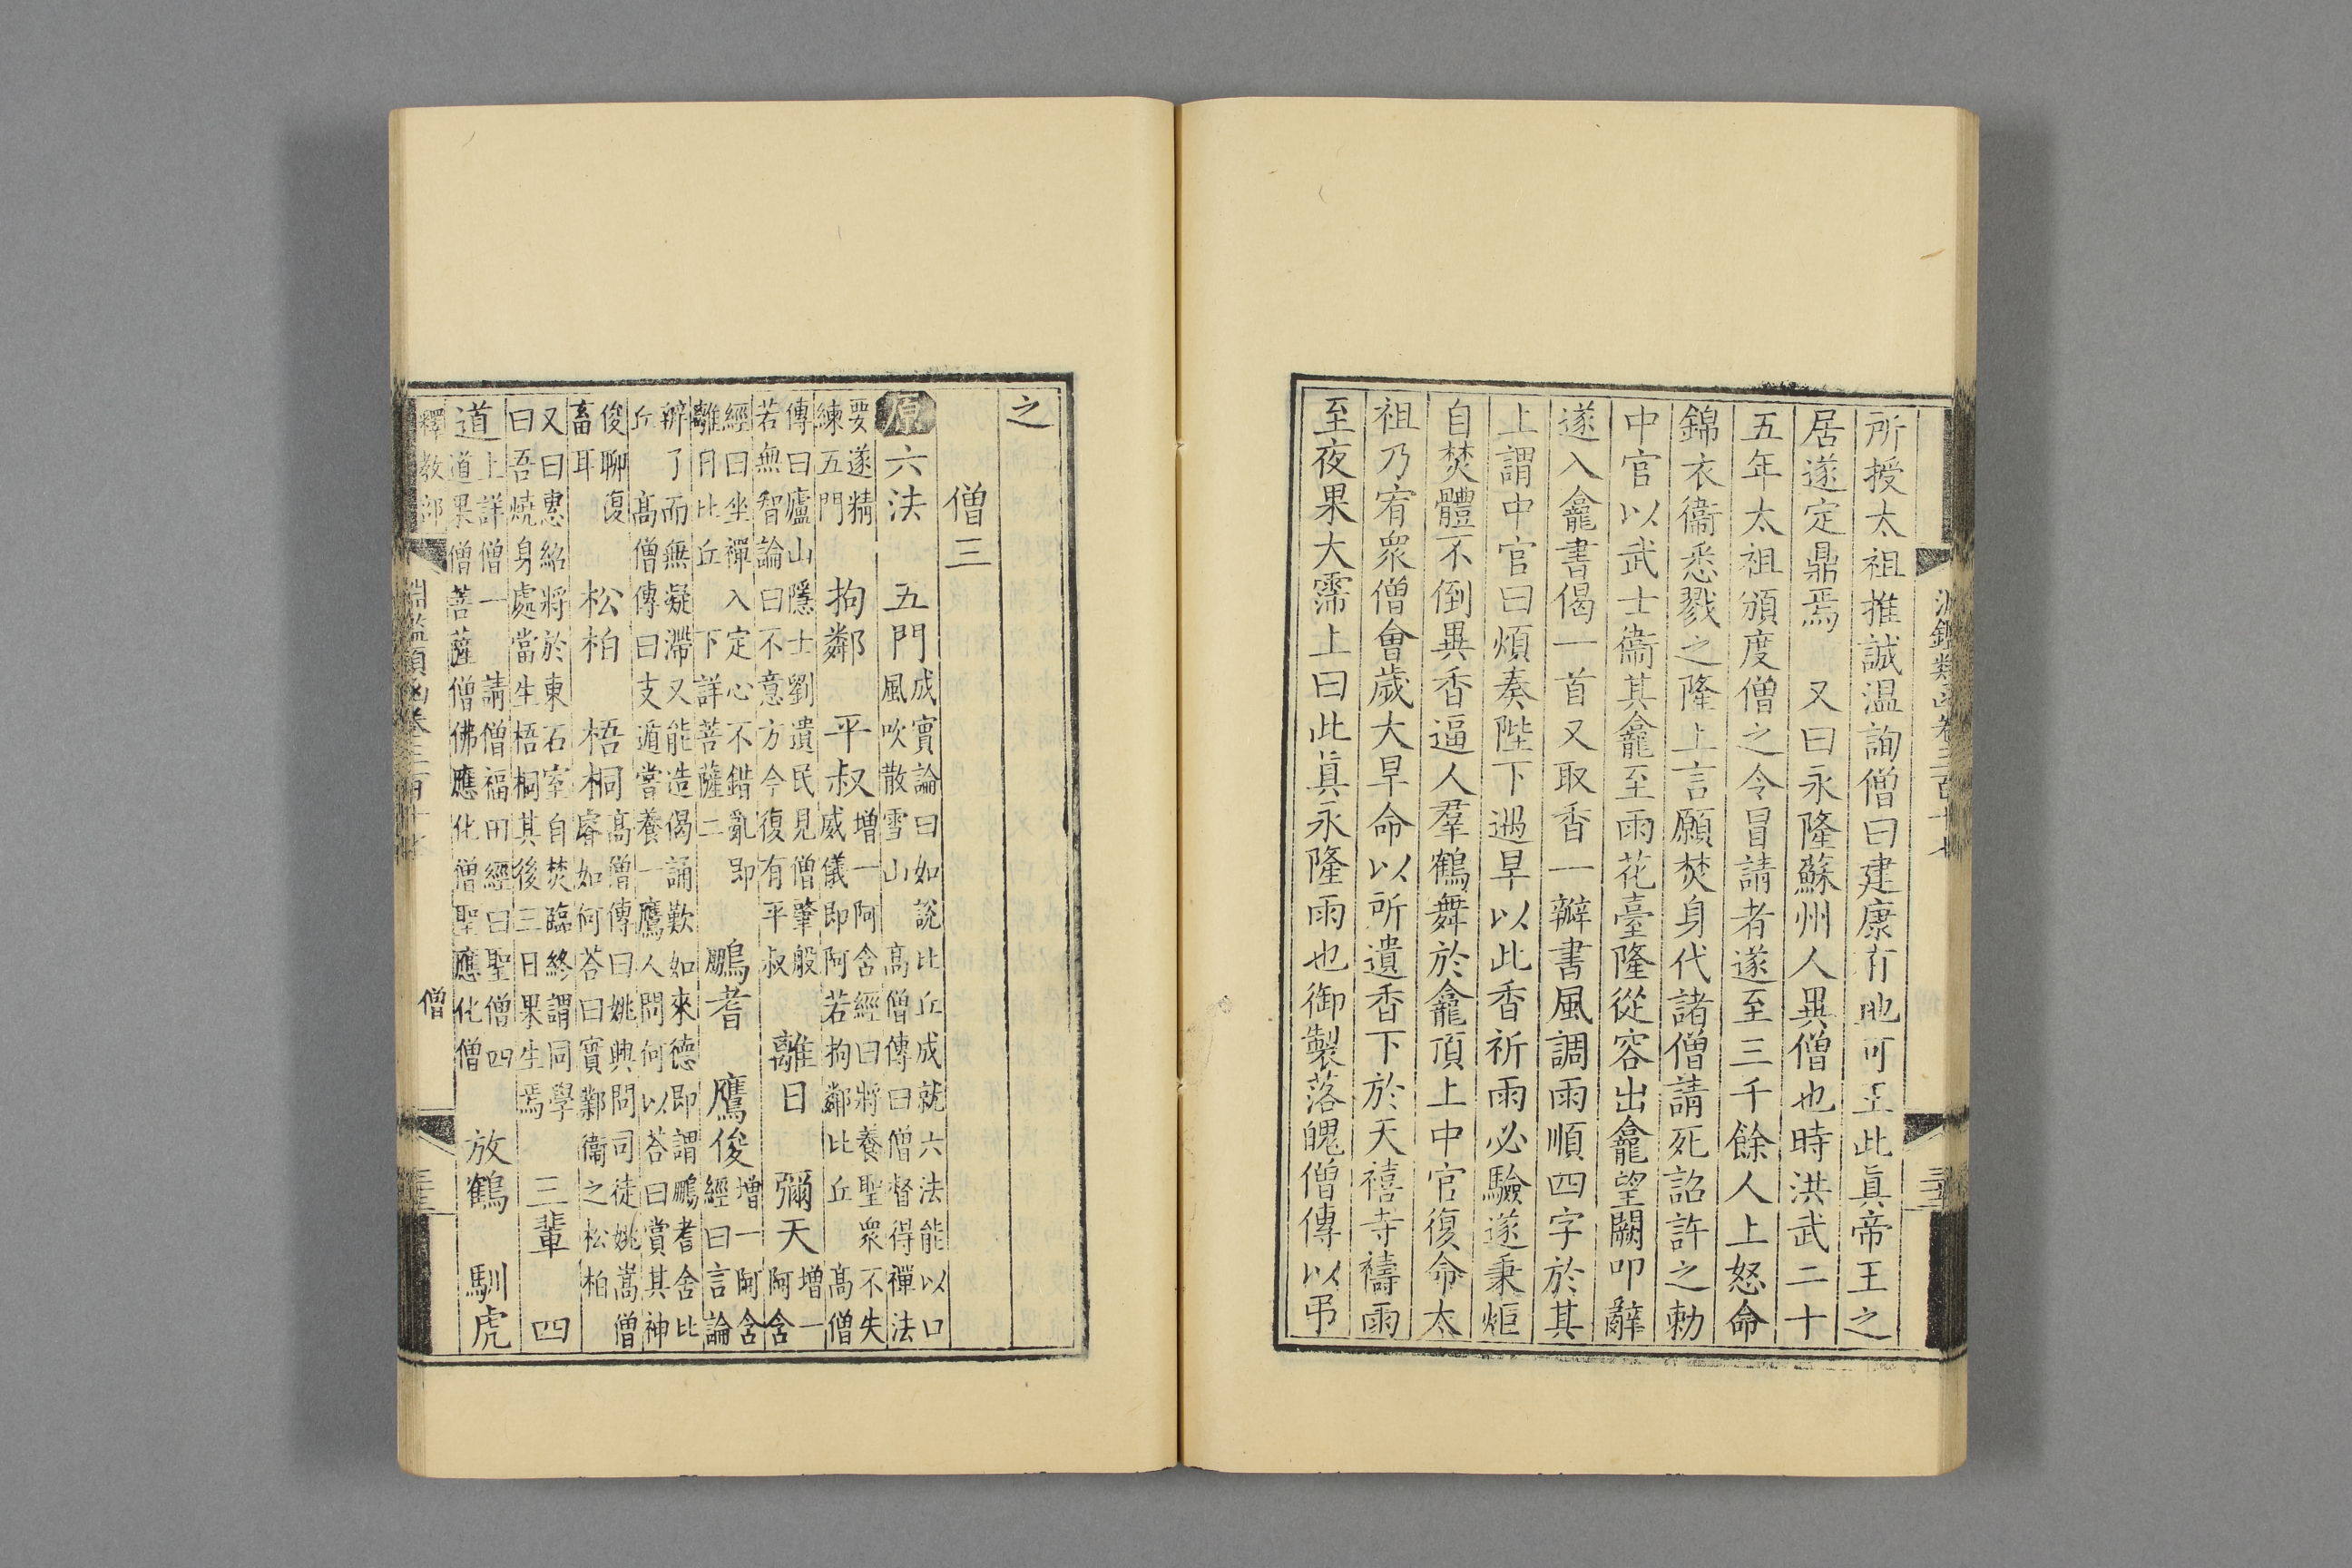 所授太祖推誠温詢僧曰建康有地可王此眞帝王之
居遂定鼎焉　又曰永隆蘇州人異僧也時洪武二十
五年太祖頒度僧之令冒請者遂至三千餘人上怒命
錦衣衞悉戮之隆上言願焚身代諸僧請死詔許之勅
中官以武士衞其龕至雨花臺隆從容出龕望闕叩辭
遂入龕書偈一首又取香一瓣書風調雨順四字於其
上謂中官曰煩奏陛下遇旱以此香祈雨必驗遂秉炬
自焚體不倒異香逼人羣鶴舞於龕頂上中官復命太
祖乃宥衆僧會歲大旱命以所遺香下於天禧寺禱雨
至夜果大霈上曰此眞永隆雨也御製落魄僧傳以弔
之
僧三
原 六法　五門 成實論曰如說比丘成就六法能以口
風吹散雪山　高僧傳曰僧督得禪法
要遂精
練五門 拘鄰　平叔 增一阿含經曰將養聖衆不失
威儀即阿若拘鄰比丘　高僧
傳曰廬山隱士劉遺民見僧肇般
若無智論曰不意方今復有平叔 離日　彌天 增一
阿含
經曰坐禪入定心不錯亂卽
離日比丘　下詳菩薩二 鵬耆　鷹俊 增一阿含
經曰言論
辨了而無凝滯又能造偈誦歎如來德即謂鵬耆舍比
丘　高僧傳曰支遁嘗養一鷹人問何以荅曰賞其神
俊聊復
畜耳 松柏　梧桐 高僧傳曰姚興問司徒姚嵩僧
睿如何荅曰實鄴衞之松柏
又曰惠紹將於東石室自焚臨終謂同學
曰吾燒身處當生梧桐其後三日果生焉 三輩　四
道 上詳僧一　請僧福田經曰聖僧四
道果僧菩薩僧佛應化僧聖應化僧 放鶴　馴虎
釋教部
僧